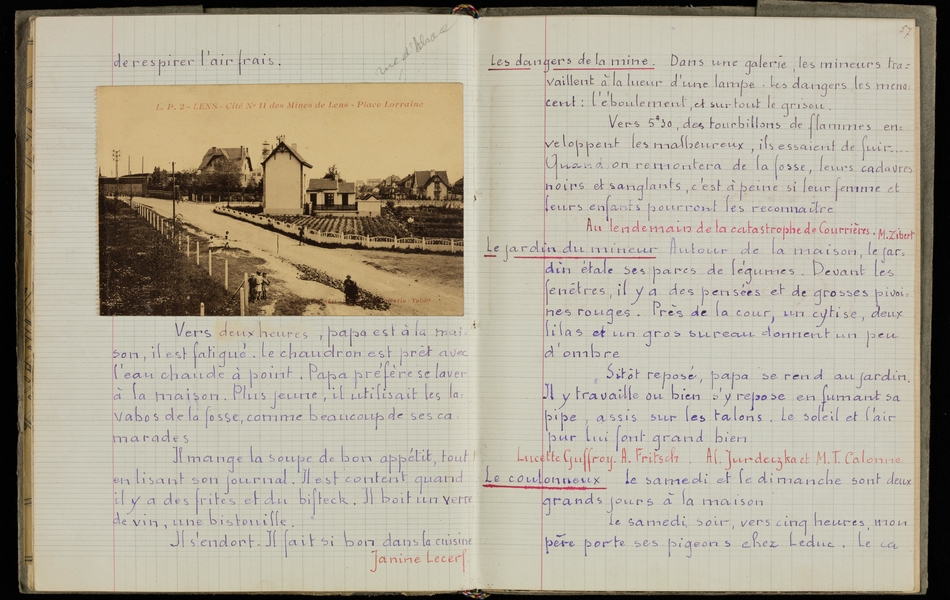 de respirer l'air frais.
rue d'Alsace
L. P. 2 - LENS - Cité No 11 des Mines de Lens - Place Lorraine
Vers deux heures, papa est à la mai-
son, il est fatigué. Le chaudron est prêt avec
l'eau chaude à point. Papa préfère se laver
à la maison. Plus jeune, il utilisait les la-
vabos de la fosse, comme beaucoup de ses ca-
marades
Il mange la soupe de bon appétit, tout
en lisant son journal. Il est content quand
il y a des frites et du bifteck. Il boit un verre
de vin, une bistouille.
Il s'endort. Il fait si bon dans la cuisine
Janine Lecerf
57
Les dangers de la mine. Dans une galerie, les mineurs tra-
vaillent à la lueur d'une lampe. Les dangers les mena-
cent : l'éboulement, et surtout le grisou.
Vers 5h30, des tourbillons de flammes en-
veloppent les malheureux, ils essaient de fuir....
Quand on remontera de la fosse, leurs cadavres
noirs et sanglants, c'est à peine si leur femme et
leurs enfants pourront les reconnaître
Au lendemain de la catastrophe de Courrières. M. Zibert
Le jardin du mineur Autour de la maison, le jar-
din étale ses parcs de légumes. Devant les
fenêtres, il y a des pensées et de grosses pivoi-
nes rouges. Près de la cour, un cytise, deux
lilas et un gros sureau donnent un peu
d'ombre
Sitôt reposé, papa se rend au jardin.
Il y travaille ou bien s'y repose en fumant sa
pipe, assis sur les talons. Le soleil et l'air
pur lui font grand bien
Lucette Guffroy. A. Fritsch. Al. Jurdeczka et M.T. Calonne
Le coulonneux Le samedi et le dimanche sont deux
grands jours à la maison
Le samedi soir, vers cinq heures, mon
père porte ses pigeons chez Leduc. Le ca